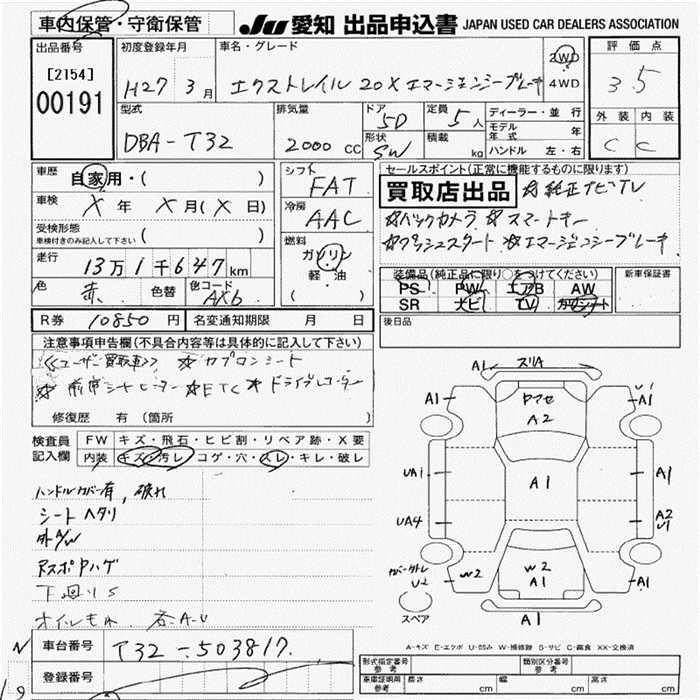 車内保管・守衛保管
JU 愛知 出品申込書 JAPAN USED CAR DEALERS ASSOCIATION
出品番号
[2154]
00191
初度登録年月
H27 3月
車名・グレード
エクストレイル 20X エマージェンシーブレーキ
2WD
4WD
評価点
3.5
外装 内装
C C
型式
DBA-T32
排気量
2000 CC
ドア
5D
形状
SW
定員
5人
積載
kg
ディーラー・並行
モデル年式 年
ハンドル 左・右
車歴
自家用・( )
車検
X 年 X 月(X 日)
受検形態
車検付きのみ記入して下さい ( )
走行
13万1千647km
色
赤
色替
色コード
AXb
シフト
FAT
冷房
AAC
燃料
ガソリン
軽・油
( )
セールスポイント(正常に機能するものに限ります)
買取店出品 ☆純正ナビTV
☆バックカメラ ☆スマートキー
☆プッシュスタート ☆エマージェンシーブレーキ
装備品(純正品に限り○をつけてください)
PS PW エアB AW
SR ナビ TV カワシート
新車保証書
後日品
R券 10850円
名変通知期限 月 日
注意事項申告欄(不具合内容等は具体的に記入して下さい)
《ユーザー買取車》 ☆カプロンシート
☆前席シートヒーター ☆ETC ☆ドライブレコーダー
修復歴 有(箇所
検査員記入欄
FW キズ・飛石・ヒビ割・リペア跡・X要
内装 キズ・汚レ・コゲ・穴・スレ・キレ・破レ
ハンドルカバー有, 破れ
シート ヘタリ
外AW
RスポPハゲ
下回りS
オイルもれ 各A-U
車台番号
T32-503817
登録番号
A1 ズリA
A1
ヤマセ
A2
U1
A1
UA1
A1
UA4
A2
U1
カバーカトレ
U2
W2
W2
A1
A1
A1
スペア
A-キズ E-エクボ U-凹み W-補修跡 S-サビ C-腐食 XX-交換済
形式指定番号
参考
類別区分番号
参考
車庫証明用
参考
長さ cm
幅 cm
高さ cm
N
19